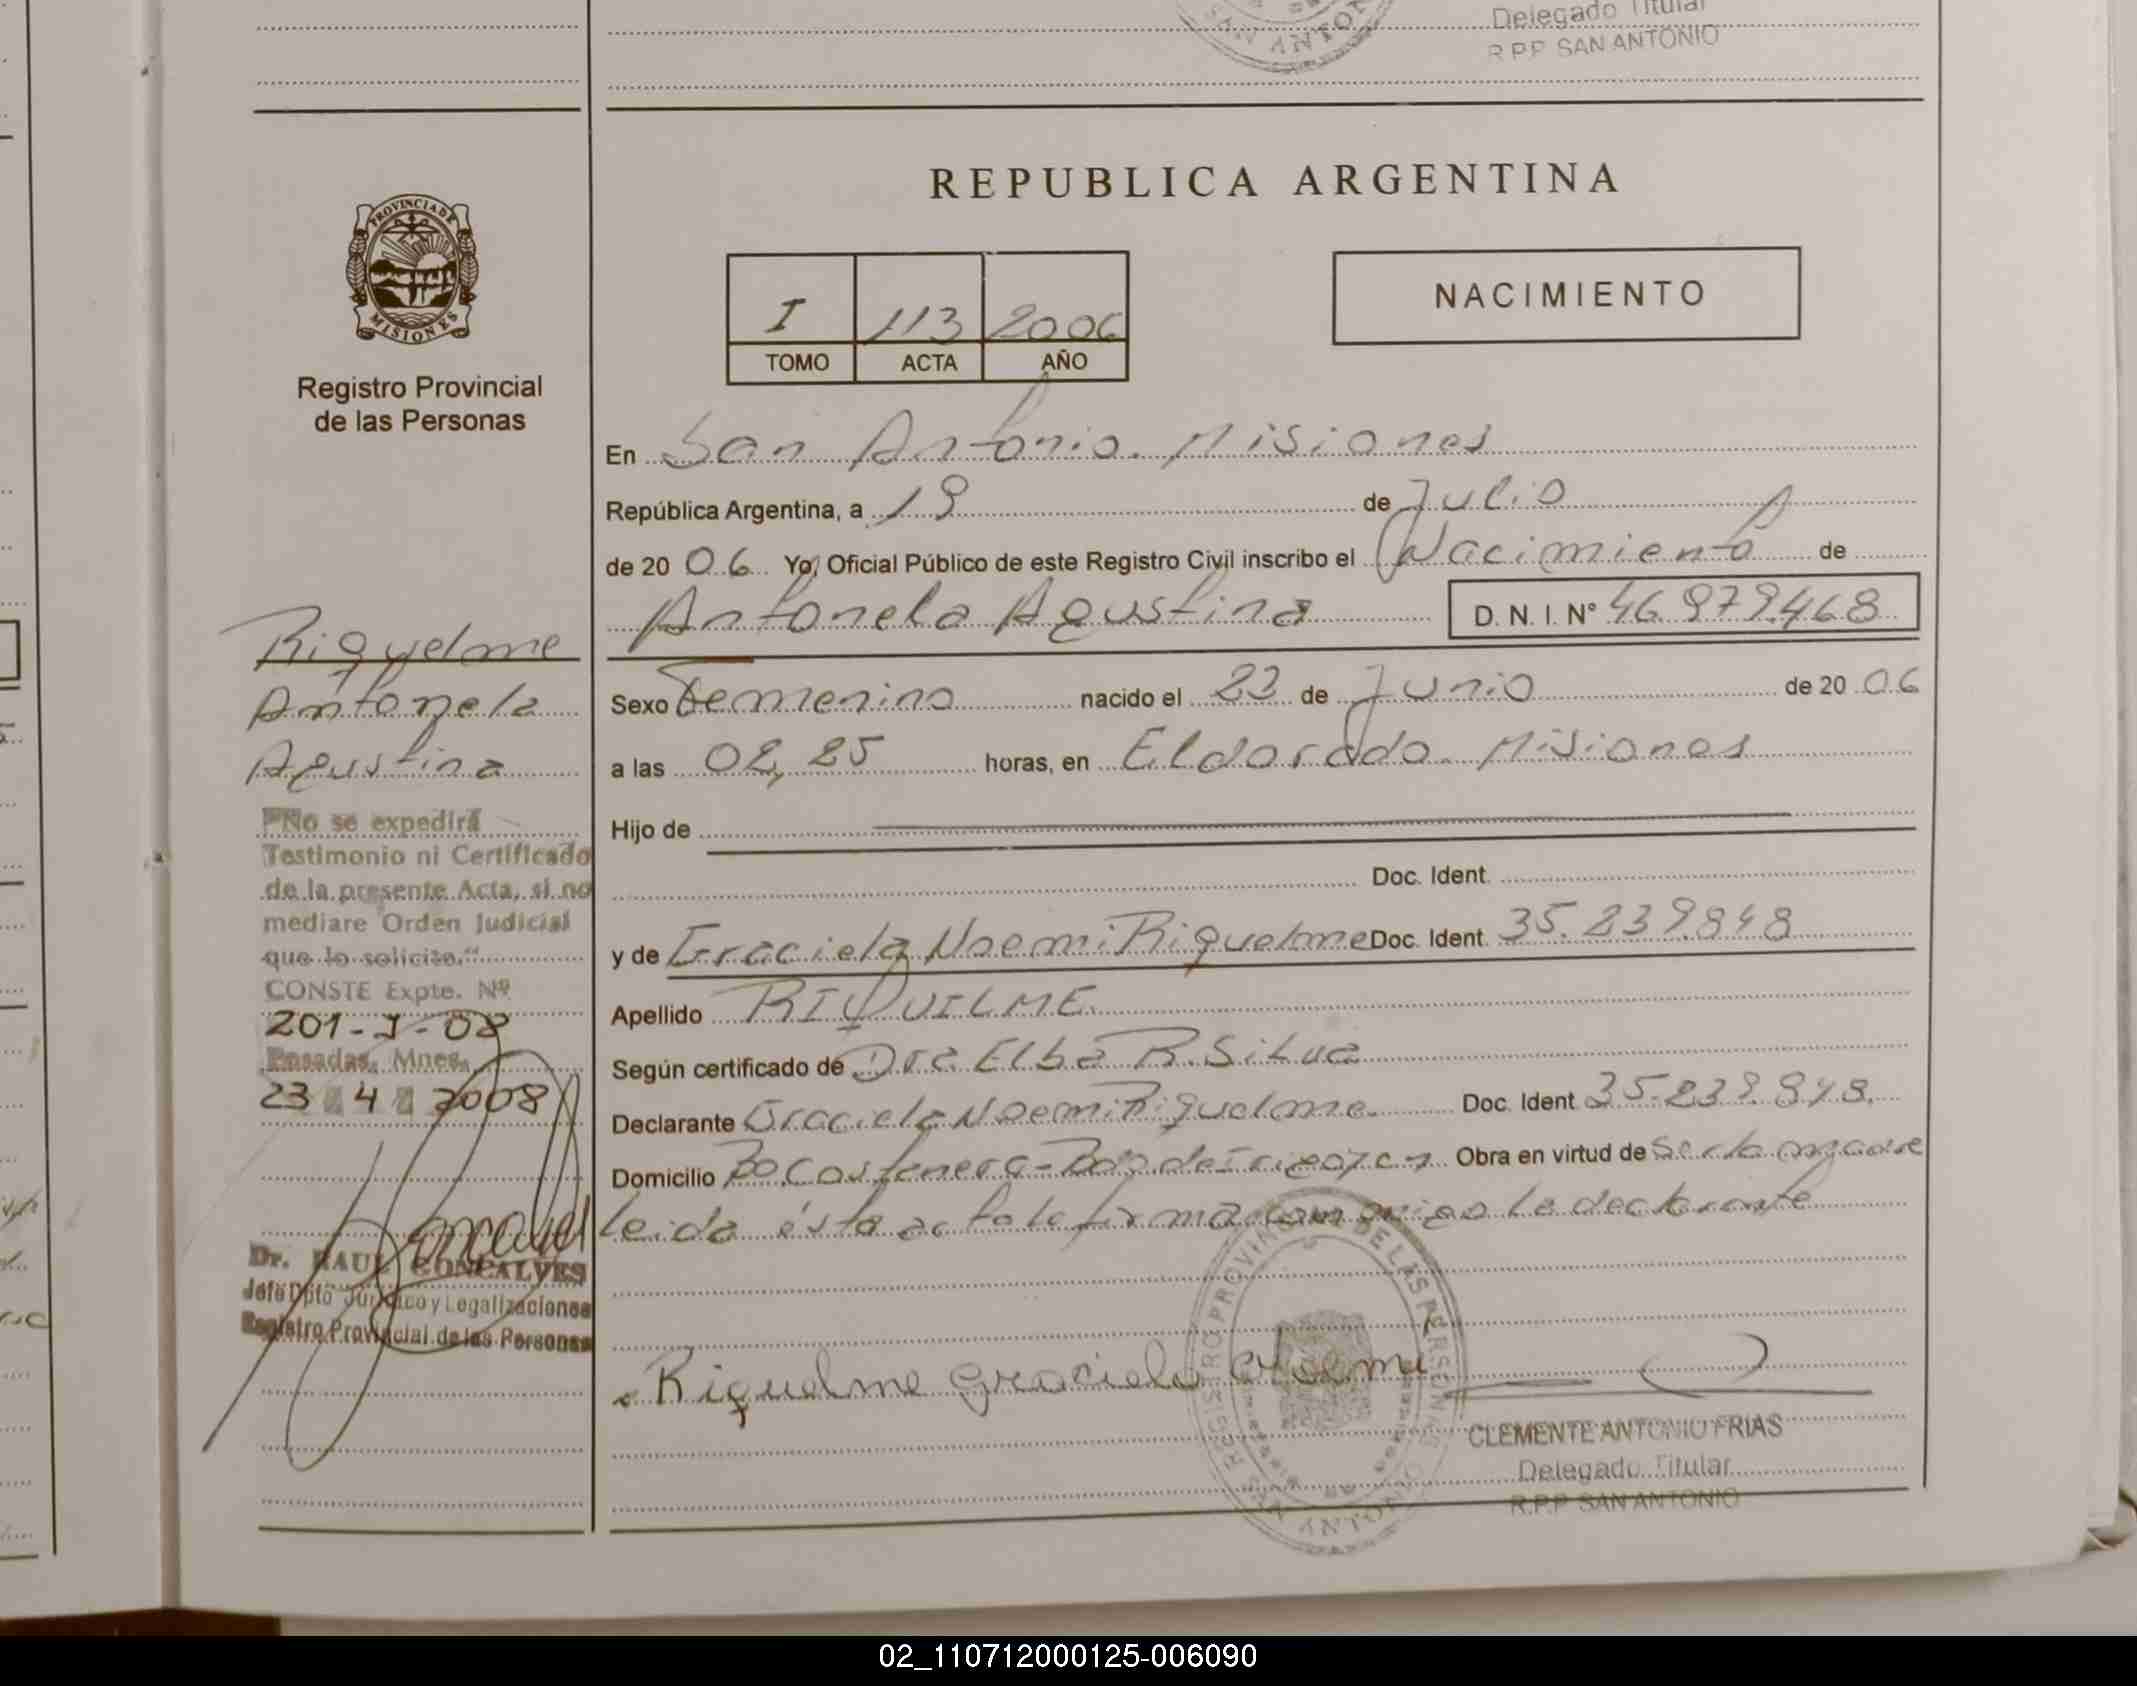 Delegado Titular
R.P.P. SAN ANTONIO
SAN ANTONIO
PROVINCIA DE
MISIONES
Registro Provincial
de las Personas
REPUBLICA ARGENTINA
I 113 2006
TOMO ACTA AÑO
NACIMIENTO
En San Antonio. Misiones
República Argentina, a 19 de Julio
de 20 06 Yo, Oficial Público de este Registro Civil inscribo el Nacimiento de
Antonela Agustina D. N. I. N° 46.979.468
Riquelme
Antonela
Agustina
Sexo Femenino nacido el 23 de Junio de 20 06
a las 02,25 horas, en Eldorado. Misiones
Hijo de
Doc. Ident.
y de Graciela Noemi Riquelme Doc. Ident. 35.239.848
Apellido RIQUELME.
Según certificado de Dra. Elba R. Silva
Declarante Graciela Noemi Riquelme. Doc. Ident. 35.239.848.
Domicilio Bo. Costanera - Bdo de Irigoyen Obra en virtud de ser la madre
leida ésta acta la firma conmigo la declarante
"No se expedirá
Testimonio ni Certificado
de la presente Acta, si no
mediare Orden Judicial
que lo solicite."
CONSTE Expte. Nº
201-J-08
Posadas, Mnes.
23 4 2008
Dr. RAUL GONCALVES
Jefe Dpto Jurídico y Legalizaciones
Registro Provincial de las Personas
Riquelme Graciela Noemi
REGISTRO PROVINCIAL DE LAS PERSONAS
SAN ANTONIO
CLEMENTE ANTONIO FRIAS
Delegado Titular
R.P.P. SAN ANTONIO
02_110712000125-006090